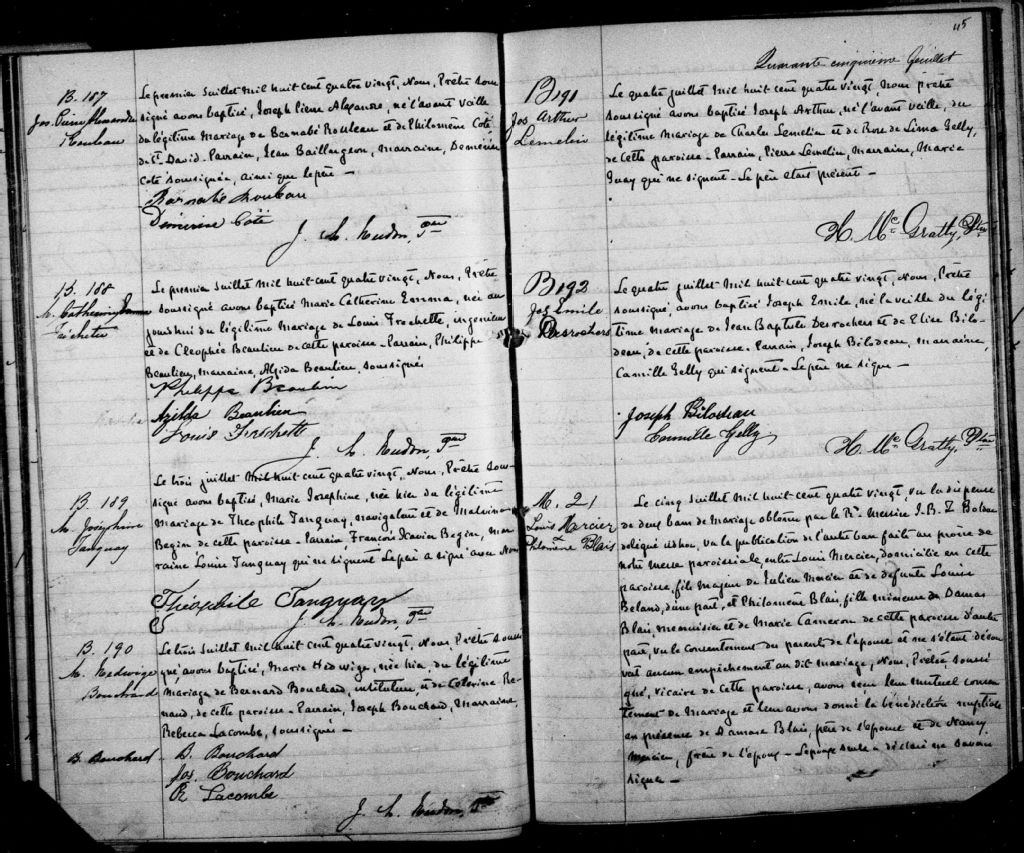 B. 187
Jos. Pierre Alexandre
Rouleau
Le premier Juillet Mil huit cent quatre vingt, Nous, Prêtre sous-
signé avons baptisé, Joseph Pierre Alexandre, né l'avant veille
du légitime Mariage de Barnabé Rouleau et de Philomène Coté
de St David - Parrain, Jean Baillargeon, Marraine, Démérise
Coté soussignée, ainsi que le père —
Barnabé Rouleau
Démerise Coté
J. A. Ptre
B. 188
M. Catherine Emma
Frochette
Le premier Juillet Mil huit cent quatre vingt, Nous, Prêtre
soussigné avons baptisé Marie Catherine Emma, née au
jourd'hui du légitime Mariage de Louis Frochette, ingénieur
et de Cleophée Beaulieu de cette paroisse - Parrain, Philippe
Beaulieu, Marraine, Alzida Beaulieu, soussignés
Philippe Beaulieu
Azilda Beaulieu
Louis Frochette
J. A. Ptre
B. 189
M. Joséphine
Tanguay
Le trois Juillet Mil huit cent quatre vingt, Nous, Prêtre sous-
signé avons baptisé, Marie Josephine, née hier du légitime
Mariage de Theophile Tanguay, navigateur et de Malvina
Begin de cette paroisse - Parrain François Xavier Begin, Mar-
raine Louise Tanguay qui ne signent Le père a signé avec Nous
Théophile Tanguay
J. A. Ptre
B. 190
M. Hedwige
Bouchard
Le trois Juillet Mil huit cent quatre vingt, Nous, Prêtre soussi-
gné, avons baptisé, Marie Hedwige, née hier, du légitime
Mariage de Bernard Bouchard, instituteur, et de Célerina Re-
naud, de cette paroisse - Parrain, Joseph Bouchard, Marraine,
Rebecca Lacombe, soussignés —
B. Bouchard
B. Bouchard
Jos. Bouchard
R Lacombe
J. A. Ptre
45
Quarante cinquième feuillet
B 191
Jos Arthur
Lemelin
Le quatre juillet Mil huit cent quatre vingt, Nous prêtre
soussigné avons baptisé Joseph Arthur, né l'avant veille, du
légitime Mariage de Charles Lemelin et de Rose de Lima Gelly,
de cette paroisse - Parrain, Pierre Lemelin, Marraine, Marie
Guay qui ne signent - Le père était présent —
H. Mc Gratty, Ptre
B 192
Jos Emile
Desrochers
Le quatre juillet Mil huit cent quatre vingt, Nous, Prêtre
soussigné, avons baptisé Joseph Emile, né la veille du légi-
time Mariage de Jean Baptiste Desrochers et de Elise Bilo-
deau, de cette paroisse - Parrain, Joseph Bilodeau, Marraine,
Camille Gelly qui signent - Le père ne signe —
Joseph Bilodeau
Camille Gelly
H. Mc Gratty, Ptre
M. 21
Louis Mercier
&
Philomène Blais
Le cinq Juillet Mil huit cent quatre vingt, vu la dispense
de deux bans de Mariage obtenue par le Rev. Messire J. B. Z Bolduc
délégué ad hoc, vu la publication de l'autre ban faite au prône de
notre Messe paroissiale, entre Louis Mercier, domicilié en cette
paroisse, fils Majeur de Julien Mercier et de défunte Louise
Beland, d'une part, et Philomène Blais, fille mineure de Damas
Blais, menuisier et de Marie Cameron de cette paroisse d'autre
part, vu le consentement du parent de l'épouse et ne s'étant décou-
vert aucun empêchement au dit mariage, Nous, Prêtre soussi-
gné, vicaire de cette paroisse, avons reçu leur mutuel consen-
tement de Mariage et leur avons donné la bénédiction nuptiale
en présence de Damase Blais, père de l'épouse et de Nancy
Mercier, frère de l'époux - L'épouse seule a déclaré ne savoir
signer —